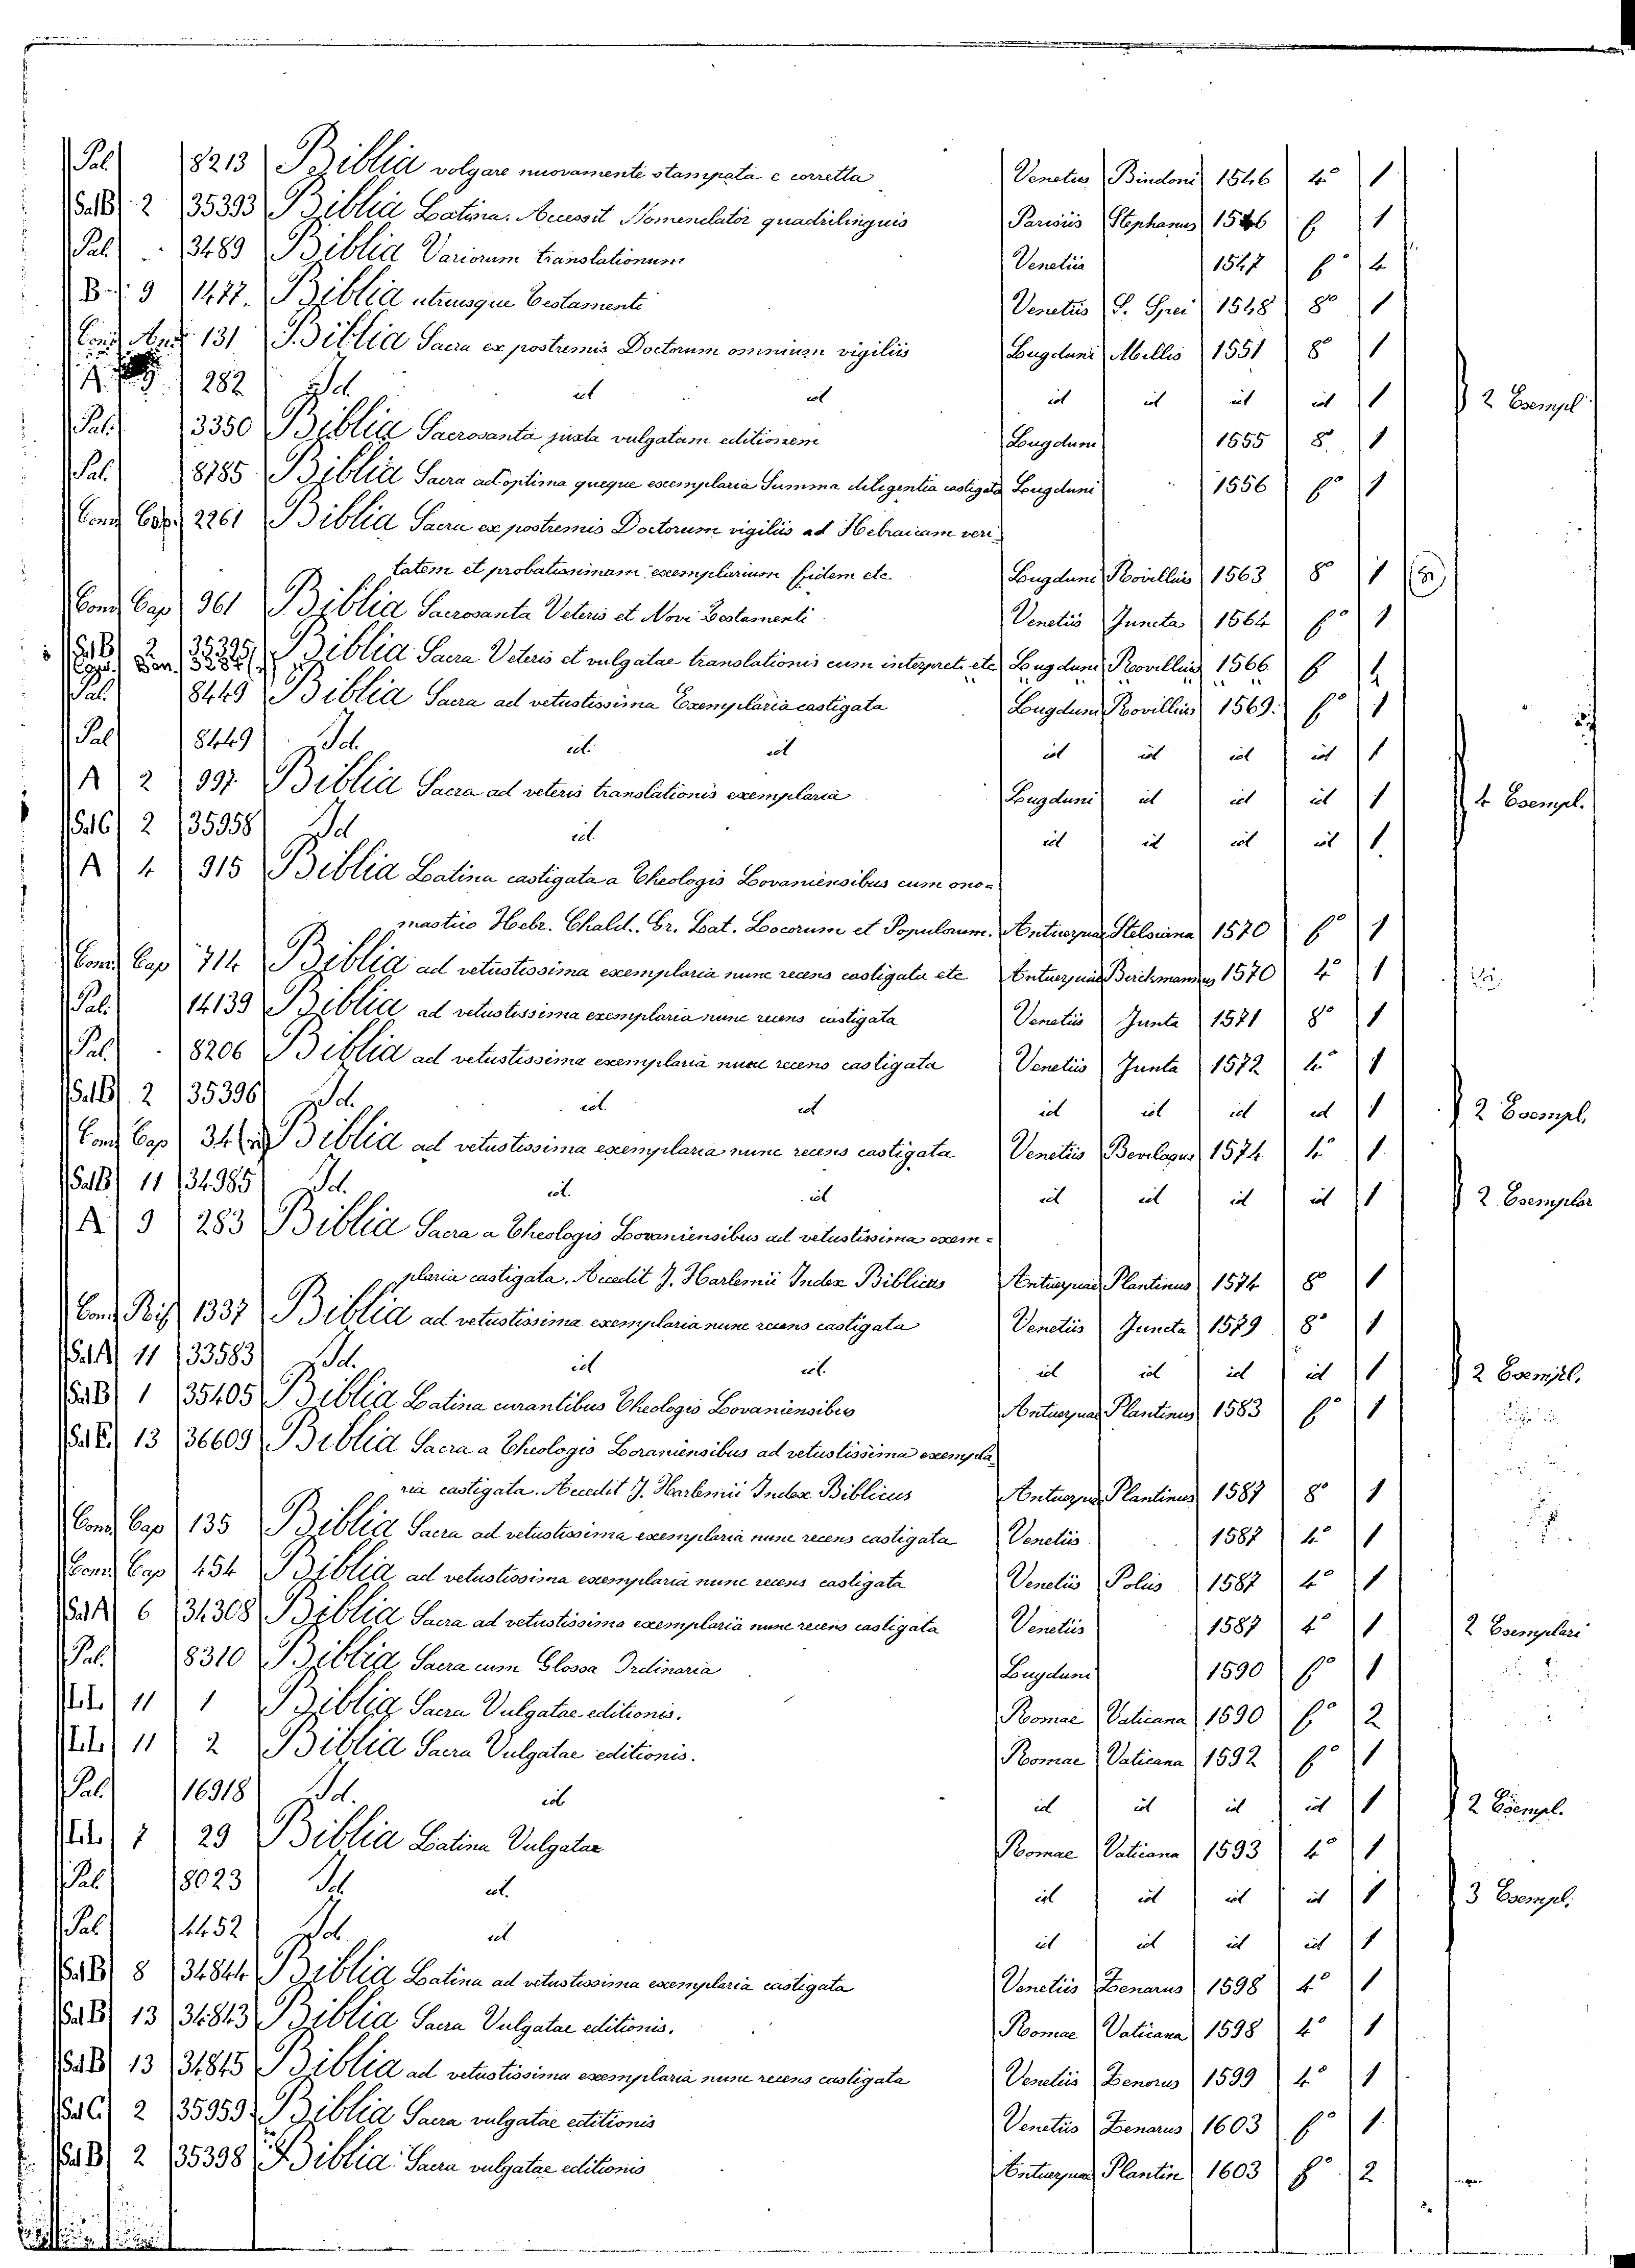 Pal. 8213 Biblia volgare nuovamente stampata e corretta Venetiis Bindoni 1546 4° 1
Sal B 2 35393 Biblia Latina. Accessit Nomenclator quadrilinguis Parisiis Stephanus 1546 f 1
Pal. 3489 Biblia Variorum translationum Venetiis 1547 f° 4
B 9 1477 Biblia utriusque Testamenti Venetiis S. Spei 1548 8° 1
Conv. 131 Biblia Sacra ex postremis Doctorum omnium vigiliis Lugduni Mollis 1551 8° 1
A 282 Id. id id id id id id 1 2 Esempl.
Pal. 3350 Biblia Sacrosanta juxta vulgatam editionem Lugduni 1555 8. 1
Pal. 8785 Biblia Sacra ad optima queque exemplaria Summa diligentia castigata Lugduni 1556 f° 1
Conv. Cap. 2261 Biblia Sacra ex postremis Doctorum vigiliis ad Hebraicam veri-
tatem et probatissimam exemplarium fidem etc Lugduni Rovillius 1563 8° 1
Conv Cap 961 Biblia Sacrosanta Veteris et Novi Testamenti Venetiis Juncta 1564 f° 1
Sal B 2 35395 Biblia Sacra Veteris et vulgatae translationis cum interpret. etc Lugduni Rovillius 1566 f
Pal. 8449 Biblia Sacra ad vetustissima Exemplaria castigata Lugduni Rovillius 1569. f° 1
Pal 8449 Id. id. id id id id id 1
A 2 997 Biblia Sacra ad veteris translationis exemplaria Lugduni id id id 1 4 Esempl.
Sal C 2 35958 Id id. id id id id 1.
A 4 915 Biblia Latina castigata a Theologis Lovaniensibus cum ono-
mastico Hebr. Chald. Gr. Lat. Locorum et Populorum. Antuerpiae Stelsiana 1570 f° 1
Conv Cap 714 Biblia ad vetustissima exemplaria nunc recens castigata etc Antuerpiae Berchmannus 1570 4° 1
Pal. 14139 Biblia ad vetustissima exemplaria nunc recens castigata Venetiis Junta 1571 8° 1
Pal. 8206 Biblia ad vetustissima exemplaria nunc recens castigata Venetiis Junta 1572 4° 1
Sal B 2 35396 Id. id. id id id id id 1 2 Esempl.
Conv Cap 34 Biblia ad vetustissima exemplaria nunc recens castigata Venetiis Bevilaqua 1574 4° 1
Sal B 11 34985 Id. id. id id id id id 1 2 Esemplar
A 9 283 Biblia Sacra a Theologis Lovaniensibus ad vetustissima exem-
plaria castigata. Accedit J. Harlemii Index Biblicus Antuerpiae Plantinus 1574 8° 1
Conv Rif 1337 Biblia ad vetustissima exemplaria nunc recens castigata Venetiis Juncta 1579 8° 1
Sal A 11 33583 Id. id id. id id id id 1 2 Esempl.
Sal B 1 35405 Biblia Latina curantibus Theologis Lovaniensibus Antuerpiae Plantinus 1583 f° 1
Sal E 13 36609 Biblia Sacra a Theologis Loraniensibus ad vetustissima exempla
ria castigata. Accedit J. Harlemii Index Biblicus Antuerpiae Plantinus 1587 8° 1
Conv Cap 135 Biblia Sacra ad vetustissima exemplaria nunc recens castigata Venetiis 1587 4° 1
Conv Cap 454 Biblia ad vetustissima exemplaria nunc recens castigata Venetiis Polus 1587 4° 1
Sal A 6 34308 Biblia Sacra ad vetustissima exemplaria nunc recens castigata Venetiis 1587 4° 1 2 Esemplari
Pal. 8310 Biblia Sacra cum Glossa Ordinaria Lugduni 1590 f° 1
11 1 Biblia Sacra Vulgatae editionis. Romae Vaticana 1590 f° 2
11 2 Biblia Sacra Vulgatae editionis. Romae Vaticana 1592 f° 1
Pal. 16918 Id. id id id id id 1 2 Esempl.
7 29 Biblia Latina Vulgatae Romae Vaticana 1593 4° 1
Pal. 8023 Id. id. id id id id 1 3 Esempl.
Pal. 4452 Id. id id id id id 1
Sal B 8 34844 Biblia Latina ad vetustissima exemplaria castigata Venetiis Zenarus 1598 4° 1
Sal B 13 34843 Biblia Sacra Vulgatae editionis. Romae Vaticana 1598 4° 1
Sal B 13 34845 Biblia ad vetustissima exemplaria nunc recens castigata Venetiis Zenorus 1599 4° 1
Sal C 2 35959 Biblia Sacra vulgatae editionis Venetiis Zenarus 1603 f° 1
Sal B 2 35398 Biblia Sacra vulgatae editionis Antuerpiae Plantin 1603 f° 2